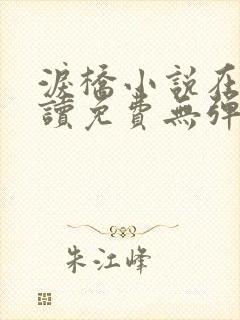 淚橋小說在
讀免費無彈
朱江峰